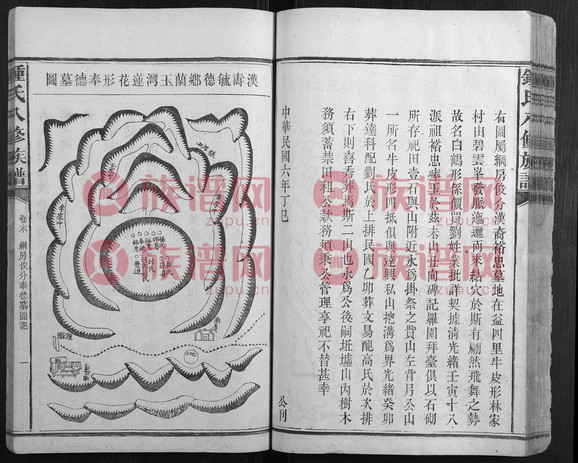 鍾氏八修族譜
右圖屬綱房俊分漢壽裕忠墓地在益四里牛皮形林家
村由碧雲峯發脈逶邐而來結穴於斯有翩然飛舞之勢
故名白鶴形係價買劉姓業批詳契據清光緒壬寅十八
派祖裕忠瘞玉於茲未山丑向碑記羅圍拜臺俱以石砌
所存祀田壹石與山附近永爲掛祭之費山左宵月公山
一所名牛皮形四抵俱與建興私山地溝爲界光緒癸卯
葬達科配劉氏於上排民國乙卯葬文易配高氏於次排
右下則喜秀葬焉斯二山也永爲公後嗣坵墟山內樹木
務須蓄禁田租公款務須秉公管理享祀不替甚幸
中華民國六年丁巳
公刊
漢壽毓德鄉蘭玉灣蓮花形奉德墓圖
鍾氏八修族譜
卷末
綱房俊分奉德墓圖記
一